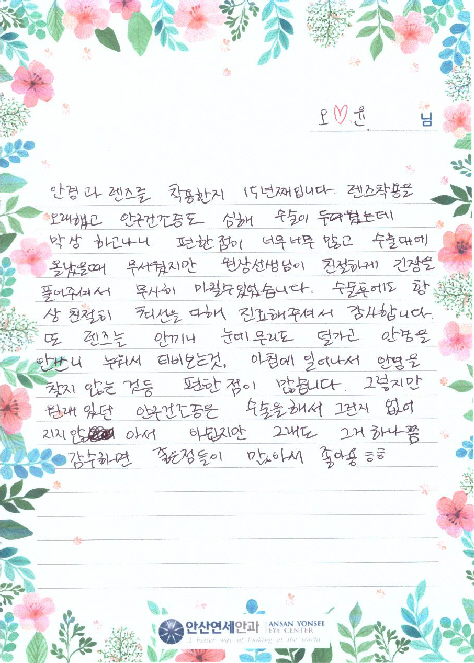 오♡윤 님
안경과 렌즈를 착용한지 15년째입니다. 렌즈착용을
오래했고 안구건조증도 심해 수술이 두려웠는데
막상 하고나니 편한점이 너무너무 많고 수술대에
올랐을때 무서웠지만 원장선생님이 친절하게 긴장을
풀어주셔서 무사히 마칠수있었습니다. 수술후에도 항
상 친절히 최선을 다해 진료해주셔서 감사합니다.
또 렌즈는 안끼니 눈에 무리도 덜가고 안경을
안쓰니 누워서 티비보는것, 아침에 일어나서 안경을
찾지 않는 것등 편한 점이 많습니다. 그렇지만
원래 있던 안구건조증은 수술을해서 그런지 없어
지지 않아서 아쉽지만 그래도 그거 하나쯤
감수하면 좋은점들이 많아서 좋아용 ㅎㅎ
안산연세안과 ANSAN YONSEI
EYE CENTER
A better way of Thinking of the world